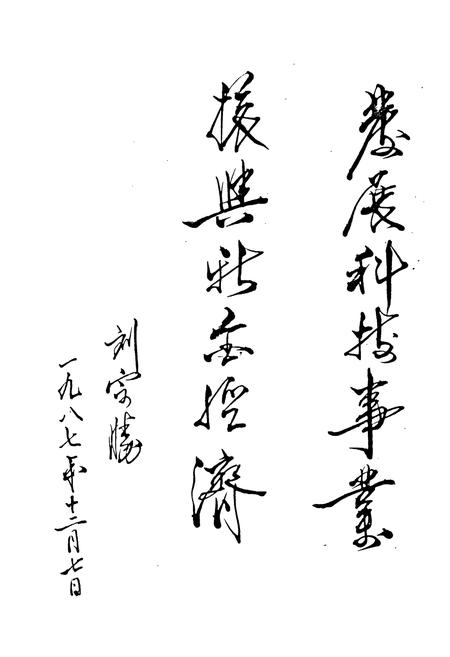 發展科技事業
振興新金經濟
刘宗勝
一九八七年十二月七日